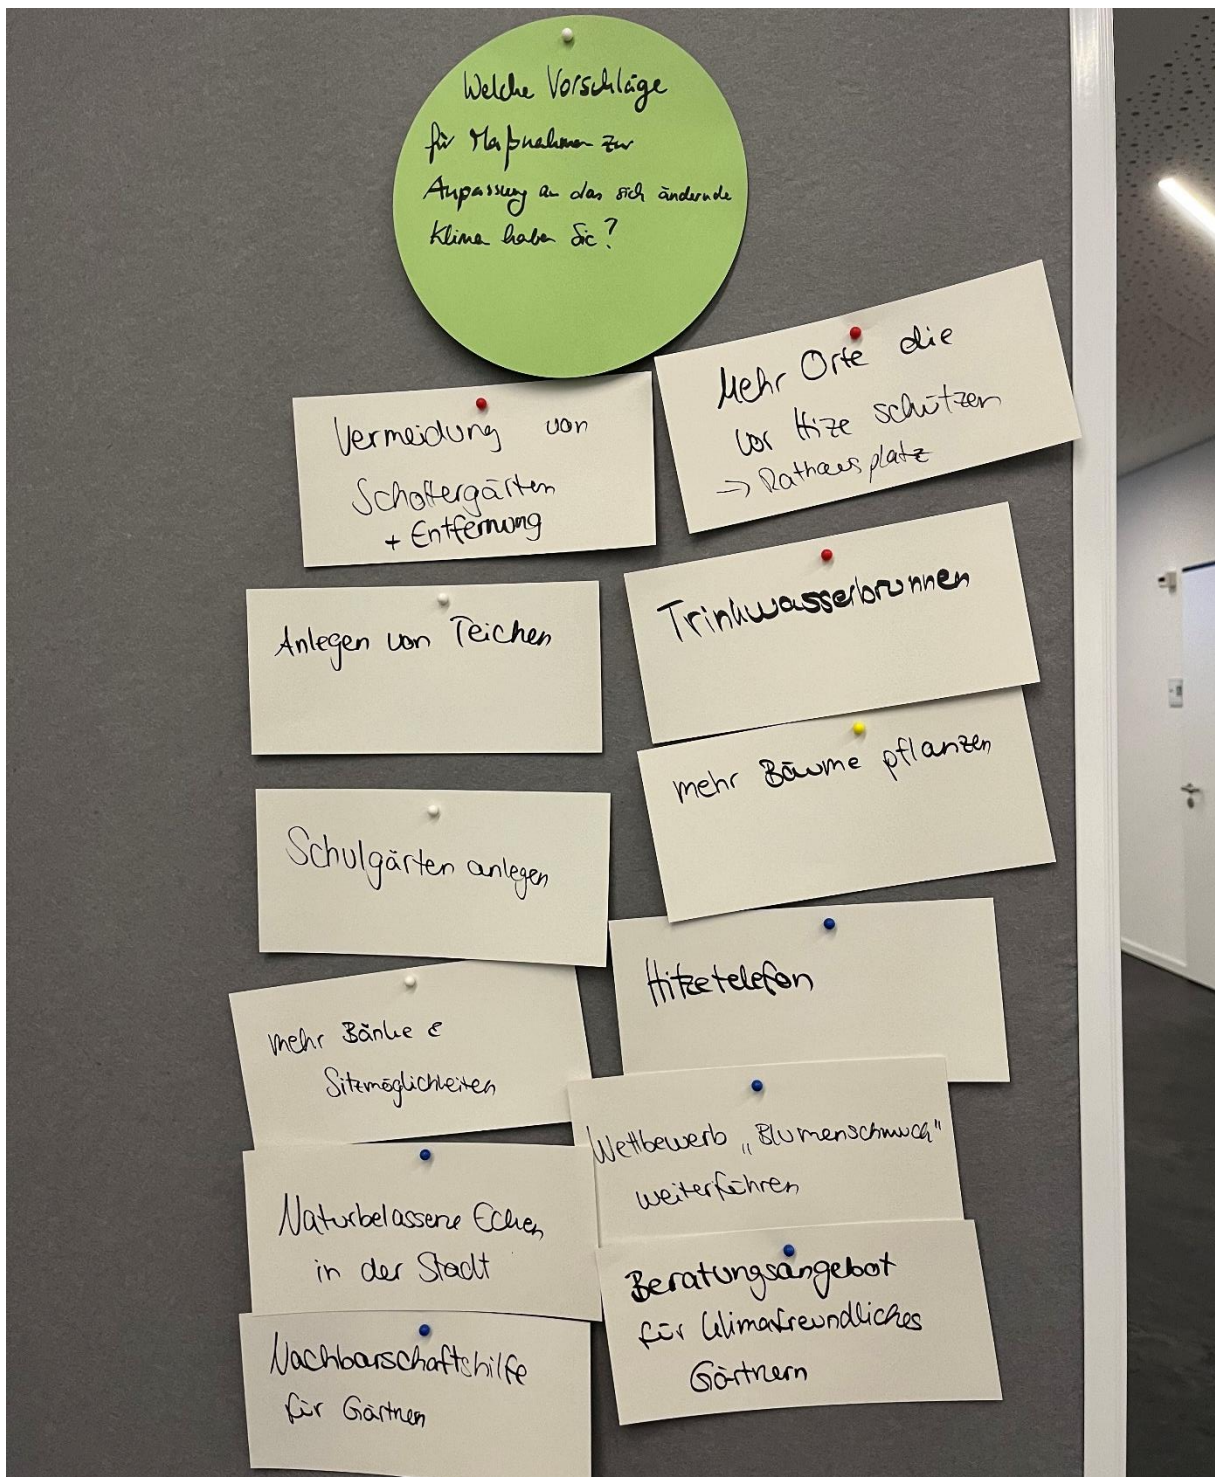 Welche Vorschläge
für Maßnahmen zur
Anpassung an das sich ändernde
Klima haben Sie?
Vermeidung von
Schottergärten
+ Entfernung
Mehr Orte die
vor Hitze schützen
→ Rathausplatz
Anlegen von Teichen
Trinkwasserbrunnen
mehr Bäume pflanzen
Schulgärten anlegen
Hitzetelefon
mehr Bänke &
Sitzmöglichkeiten
Wettbewerb „Blumenschmuck"
weiterführen
Naturbelassene Ecken
in der Stadt
Beratungsangebot
für klimafreundliches
Gärtnern
Nachbarschaftshilfe
für Gärtnen